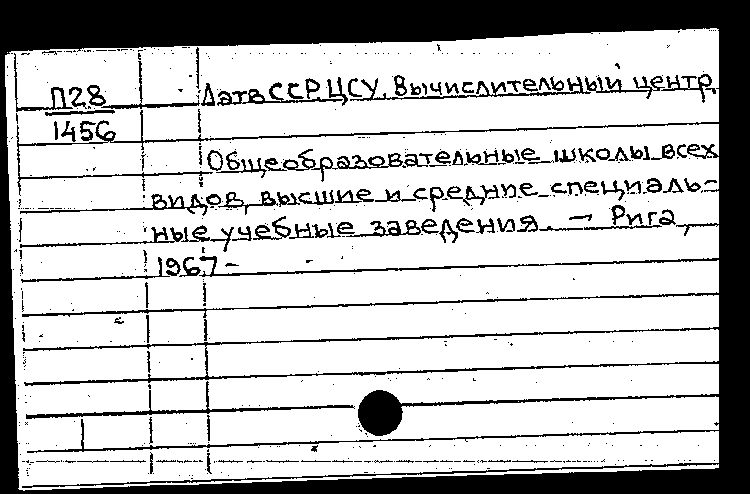 П28
1456
Латв ССР. ЦСУ. Вычислительный центр.
Общеобразовательные школы всех
видов, высшие и средние специаль-
ные учебные заведения. — Рига,
1967-